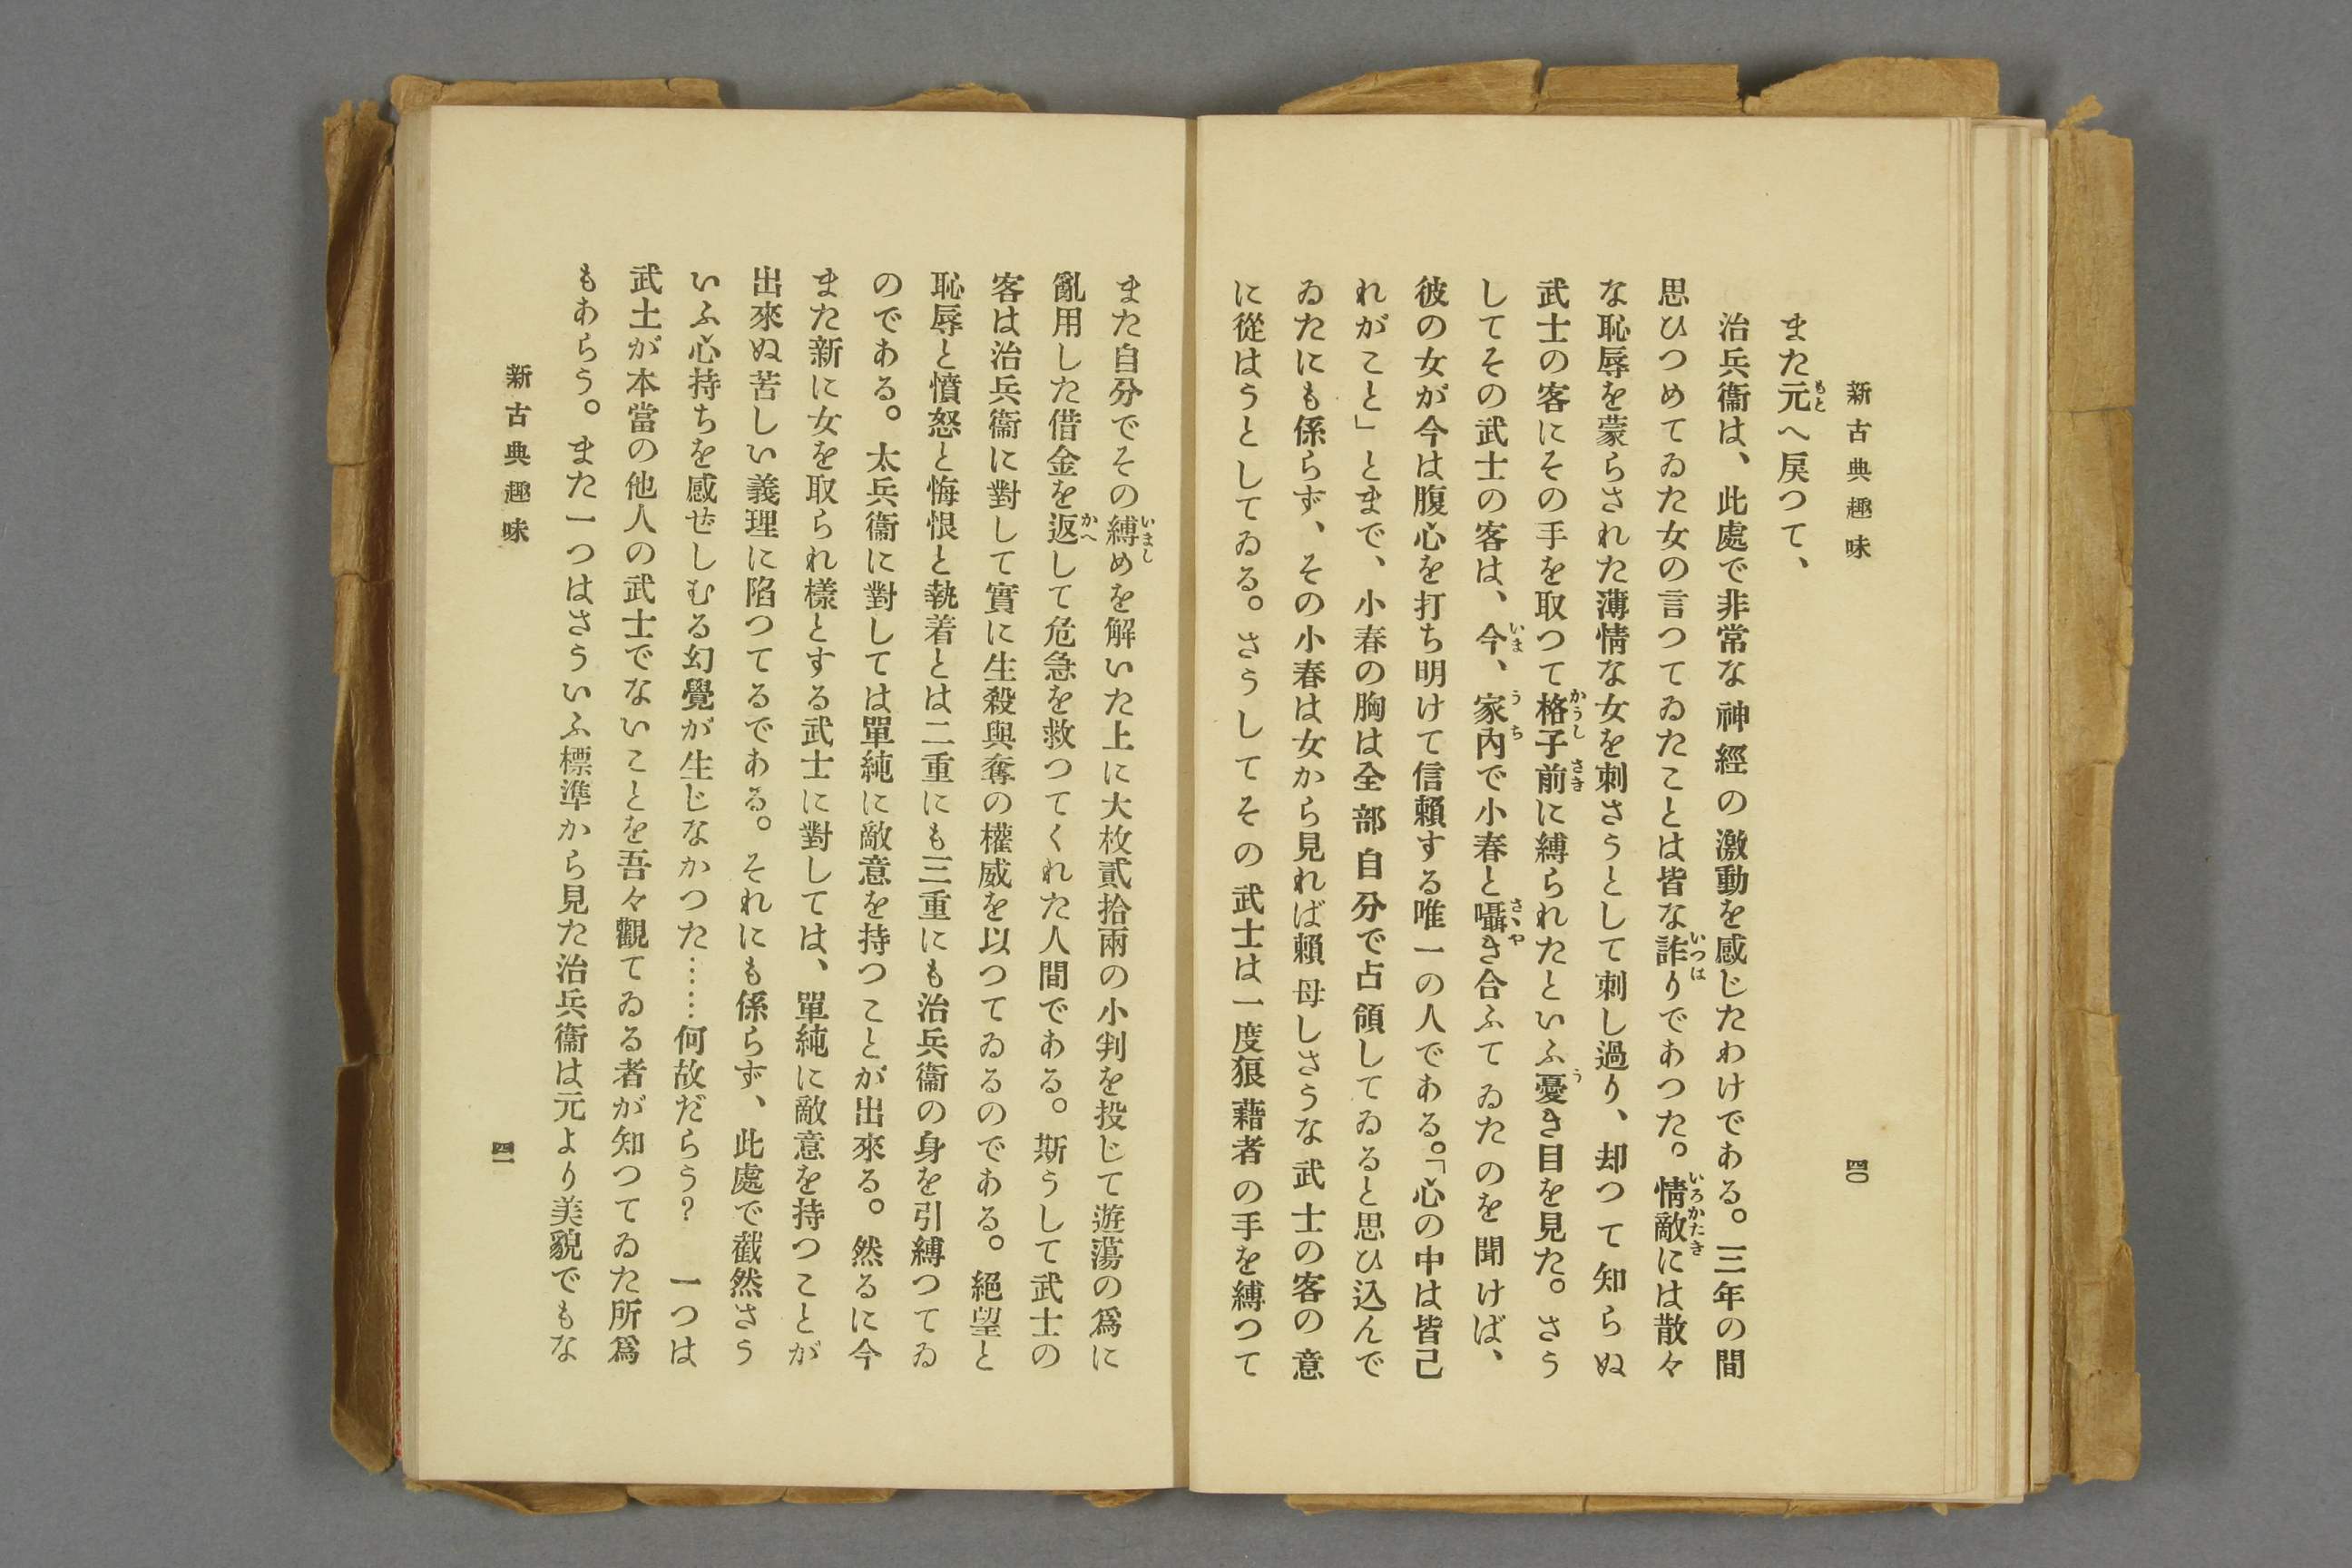 新古典趣味
四〇
また元へ戻つて、
治兵衞は、此處で非常な神經の激動を感じたわけである。三年の間
思ひつめてゐた女の言つてゐたことは皆な詐りであつた。情敵には散々
な恥辱を蒙らされた薄情な女を刺さうとして刺し過り、却つて知らぬ
武士の客にその手を取つて格子前に縛られたといふ憂き目を見た。さう
してその武士の客は、今、家內で小春と囁き合ふてゐたのを聞けば、
彼の女が今は腹心を打ち明けて信賴する唯一の人である。「心の中は皆己
れがこと」とまで、小春の胸は全部自分で占領してゐると思ひ込んで
ゐたにも係らず、その小春は女から見れば賴母しさうな武士の客の意
に從はうとしてゐる。さうしてその武士は一度狼藉者の手を縛つて
また自分でその縛めを解いた上に大枚貳拾兩の小判を投じて遊蕩の爲に
亂用した借金を返して危急を救つてくれた人間である。斯うして武士の
客は治兵衞に對して實に生殺與奪の權威を以つてゐるのである。絕望と
恥辱と憤怒と悔恨と執着とは二重にも三重にも治兵衞の身を引縛つてゐ
のである。太兵衞に對しては單純に敵意を持つことが出來る。然るに今
また新に女を取られ樣とする武士に對しては、單純に敵意を持つことが
出來ぬ苦しい義理に陷つてるである。それにも係らず、此處で截然さう
いふ心持ちを感ぜしむる幻覺が生じなかつた……何故だらう？　一つは
武士が本當の他人の武士でないことを吾々觀てゐる者が知つてゐた所爲
もあらう。また一つはさういふ標準から見た治兵衞は元より美貌でもな
新古典趣味
四一